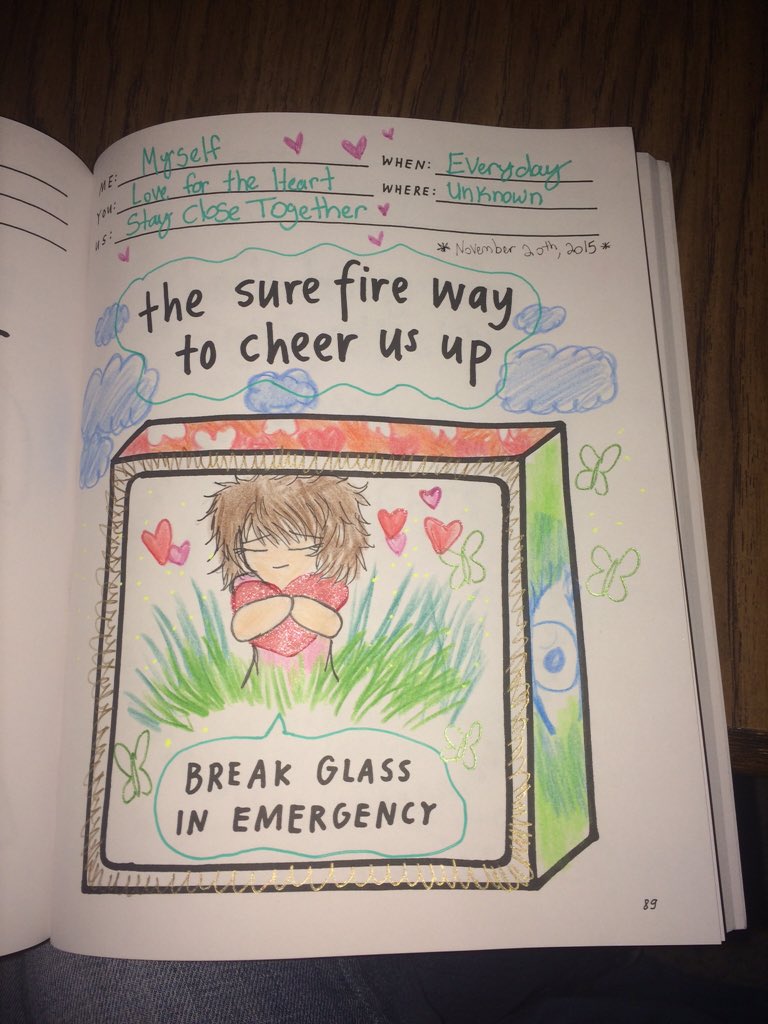 ME: Myself
WHEN: Everyday
YOU: Love for the Heart
WHERE: Unknown
US: Stay Close Together
* November 20th, 2015 *
the sure fire way
to cheer us up
BREAK GLASS
IN EMERGENCY
89